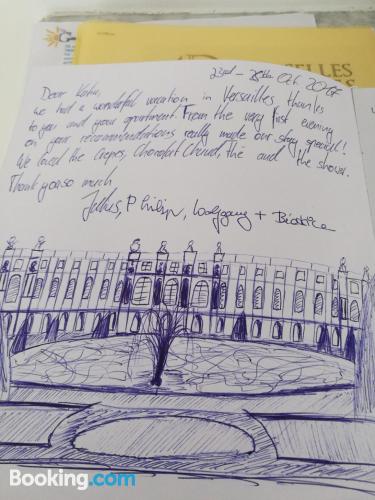 23rd - 28th Oct 2017
SELLES
Dear Katia,
we had a wonderful vacation in Versailles, thanks
to you and your apartment. From the very first evening
on your recommendations really made our stay special!
We loved the Crêpes, Chocolat Chaud, thé and the shows.
Thank you so much
Julius, Philipp, Wolfgang + Beatrice
Booking.com